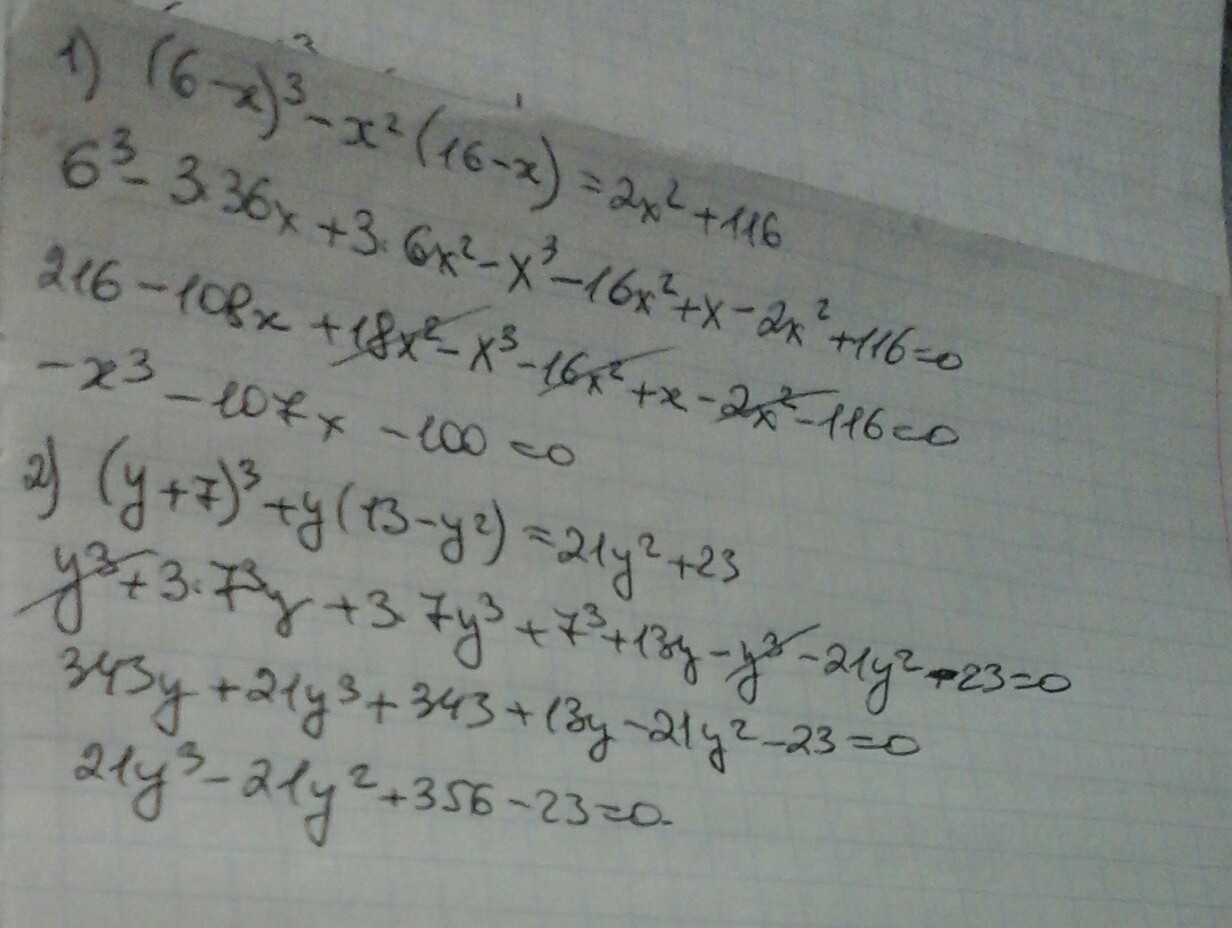 1) (6-x)³ - x² (16-x) = 2x² + 116
6³ - 3·36x + 3·6x² - x³ - 16x² + x - 2x² + 116 = 0
216 - 108x + 18x² - x³ - 16x² + x - 2x² - 116 = 0
-x³ - 107x - 100 = 0
2) (y+7)³ + y(13-y²) = 21y² + 23
y³ + 3·7³y + 3·7y³ + 7³ + 13y - y³ - 21y² - 23 = 0
343y + 21y³ + 343 + 13y - 21y² - 23 = 0
21y³ - 21y² + 356 - 23 = 0.